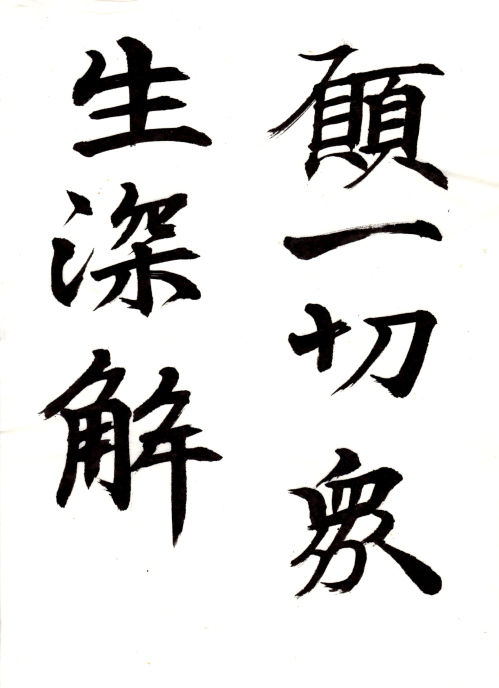 願一切衆
生深解